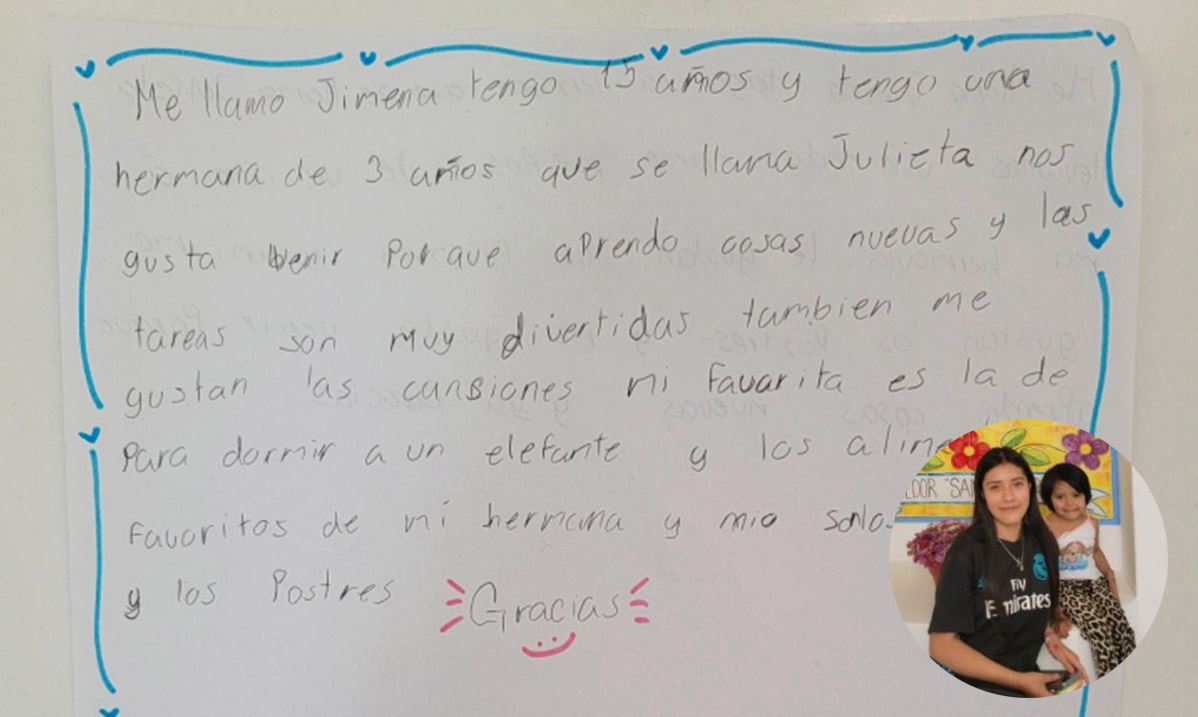 Me llamo Jimena tengo 15 años y tengo una
hermana de 3 años que se llama Julieta nos
gusta benir Porque aPrendo cosas nuevas y las
tareas son muy divertidas tambien me
gustan las cansiones mi favarita es la de
Para dormir a un elefante y los
Favoritos de mi hermana y mio
y los Postres
Gracias
Fly
Emirates